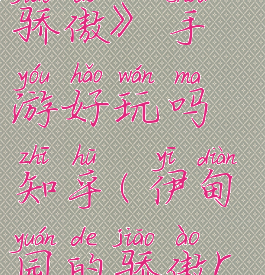 骄傲》 手
yóu hǎo wán ma
游好玩吗
zhī hū yī diàn
知乎(伊甸
yuán de jiāo ào
园的骄傲(